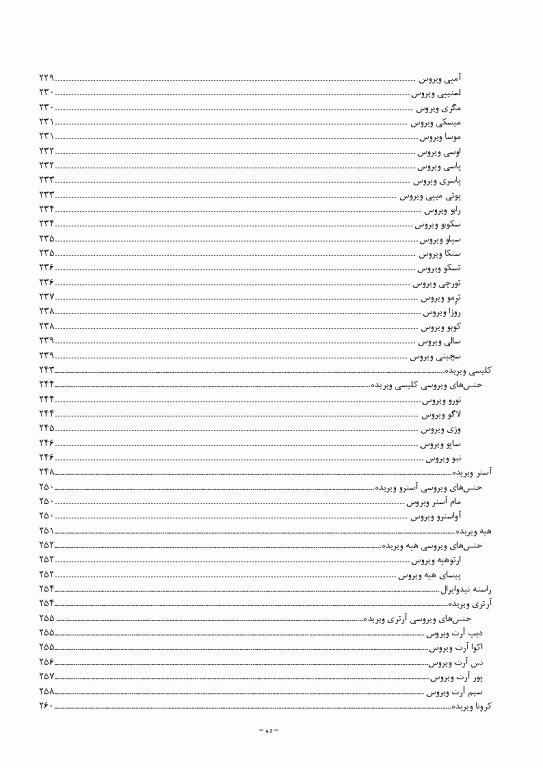 آمپی ویروس ........ ۲۲۹
لمنیپی ویروس ........ ۲۳۰
مگری ویروس ........ ۲۳۰
میسکی ویروس ........ ۲۳۱
موسا ویروس ........ ۲۳۱
اوسی ویروس ........ ۲۳۲
پاسی ویروس ........ ۲۳۲
پاسری ویروس ........ ۲۳۳
پوتی میپی ویروس ........ ۲۳۳
رابو ویروس ........ ۲۳۴
سکوبو ویروس ........ ۲۳۴
سیلو ویروس ........ ۲۳۵
سنکا ویروس ........ ۲۳۵
تسکو ویروس ........ ۲۳۶
تورچی ویروس ........ ۲۳۶
ترمو ویروس ........ ۲۳۷
روزا ویروس ........ ۲۳۸
کوبو ویروس ........ ۲۳۸
سالی ویروس ........ ۲۳۹
سچینی ویروس ........ ۲۳۹
کلیسی ویریده ........ ۲۴۳
جنس‌های ویروسی کلیسی ویریده ........ ۲۴۴
نورو ویروس ........ ۲۴۴
لاگو ویروس ........ ۲۴۴
وزی ویروس ........ ۲۴۵
ساپو ویروس ........ ۲۴۶
نبو ویروس ........ ۲۴۶
آستر ویریده ........ ۲۴۸
جنس‌های ویروسی آسترو ویریده ........ ۲۵۰
مام آستر ویروس ........ ۲۵۰
آواسترو ویروس ........ ۲۵۰
هپه ویریده ........ ۲۵۱
جنس‌های ویروسی هپه ویریده ........ ۲۵۲
ارتوهپه ویروس ........ ۲۵۲
پیسای هپه ویروس ........ ۲۵۲
راسته نیدوایرال ........ ۲۵۴
آرتری ویریده ........ ۲۵۴
جنس‌های ویروسی آرتری ویریده ........ ۲۵۵
دیپ آرت ویروس ........ ۲۵۵
اکوا آرت ویروس ........ ۲۵۵
نس آرت ویروس ........ ۲۵۶
پور آرت ویروس ........ ۲۵۷
سیم آرت ویروس ........ ۲۵۸
کرونا ویریده ........ ۲۶۰
- ده -